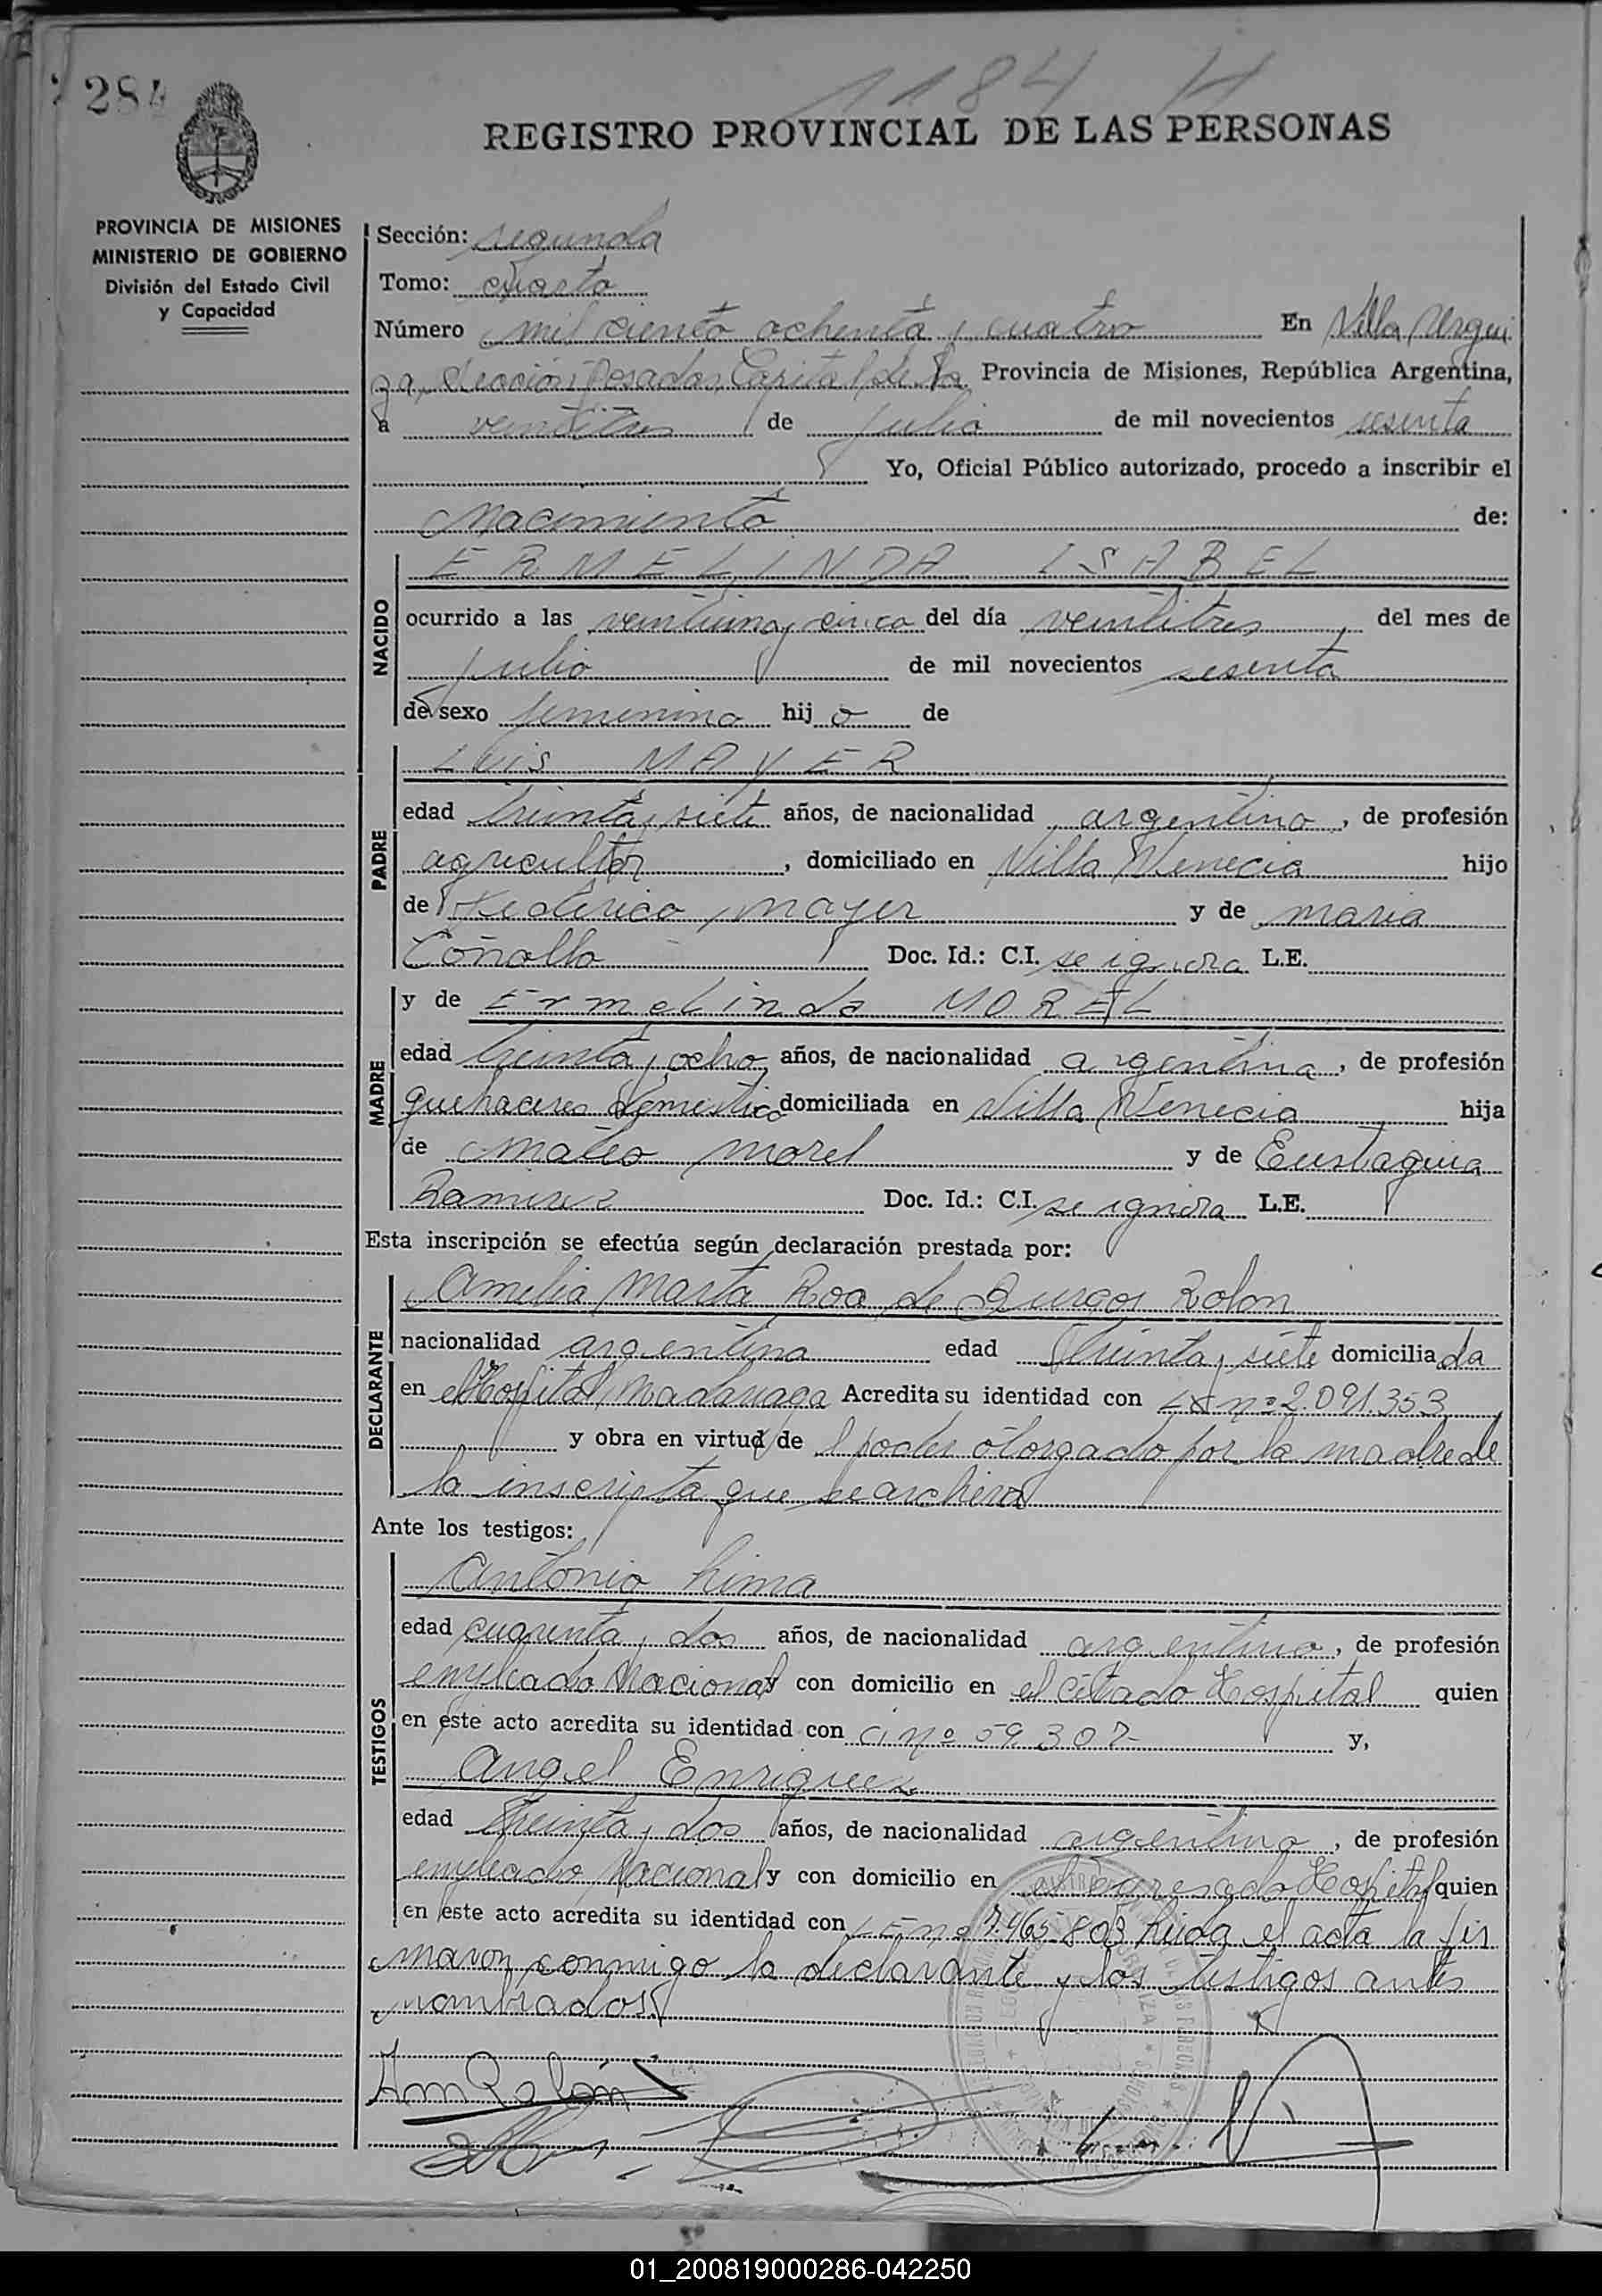 284
1184 H
REGISTRO PROVINCIAL DE LAS PERSONAS
PROVINCIA DE MISIONES
MINISTERIO DE GOBIERNO
División del Estado Civil
y Capacidad
Sección: segunda
Tomo: cuarto
Número mil ciento ochenta y cuatro En Villa Urqui
za, Sección Posadas, Capital de la Provincia de Misiones, República Argentina,
a veintitres de julio de mil novecientos sesenta
Yo, Oficial Público autorizado, procedo a inscribir el
Nacimiento de:
NACIDO
ERMELINDA ISABEL
ocurrido a las veintiuna y cinco del día veintitres, del mes de
julio de mil novecientos sesenta
de sexo femenino hij o de
PADRE
Luis MAYER
edad treinta y siete años, de nacionalidad argentino, de profesión
agricultor, domiciliado en Villa Venecia hijo
de Federico Mayer y de Maria
Doc. Id.: C.I. se ignora L.E.
MADRE
y de Ermelinda MOREL
edad treinta y ocho años, de nacionalidad argentina, de profesión
quehaceres domestico domiciliada en Villa Venecia hija
de Mateo Morel y de Eustaquia
Ramirez Doc. Id.: C.I. se ignora L.E.
Esta inscripción se efectúa según declaración prestada por:
DECLARANTE
Amelia Marta Roa de Burgos Rolon
nacionalidad argentina edad treinta y siete domicilia da
en el Hospital Madariaga Acredita su identidad con nº 2.091.353
y obra en virtud de l poder otorgado por la madre de
la inscripta que se archiva
Ante los testigos:
TESTIGOS
Antonio Lima
edad cuarenta y dos años, de nacionalidad argentino, de profesión
empleado Nacional y con domicilio en el citado Hospital quien
en este acto acredita su identidad con CI nº 59.307 y,
Angel Enriquez
edad treinta y dos años, de nacionalidad argentino, de profesión
empleado Nacional y con domicilio en el expresado Hospital quien
en este acto acredita su identidad con LE nº 7.465.803 leida el acta la fir
maron conmigo la declarante y los testigos antes
nombrados
01_200819000286-042250